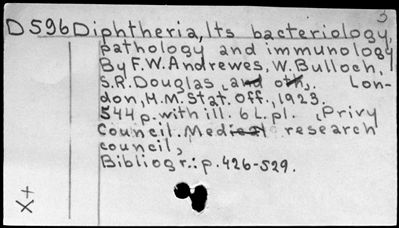 5
D596 Diphtheria, Its bacteriology,
pathology and immunology
By F.W. Andrewes, W. Bulloch,
S.R. Douglas, and oth,. Lon-
don, H.M. Stat. Off., 1923.
544 p. with ill. 6 L. pl. , Privy
Council. Medical research
council,
Bibliogr.: p. 426-529.
X+